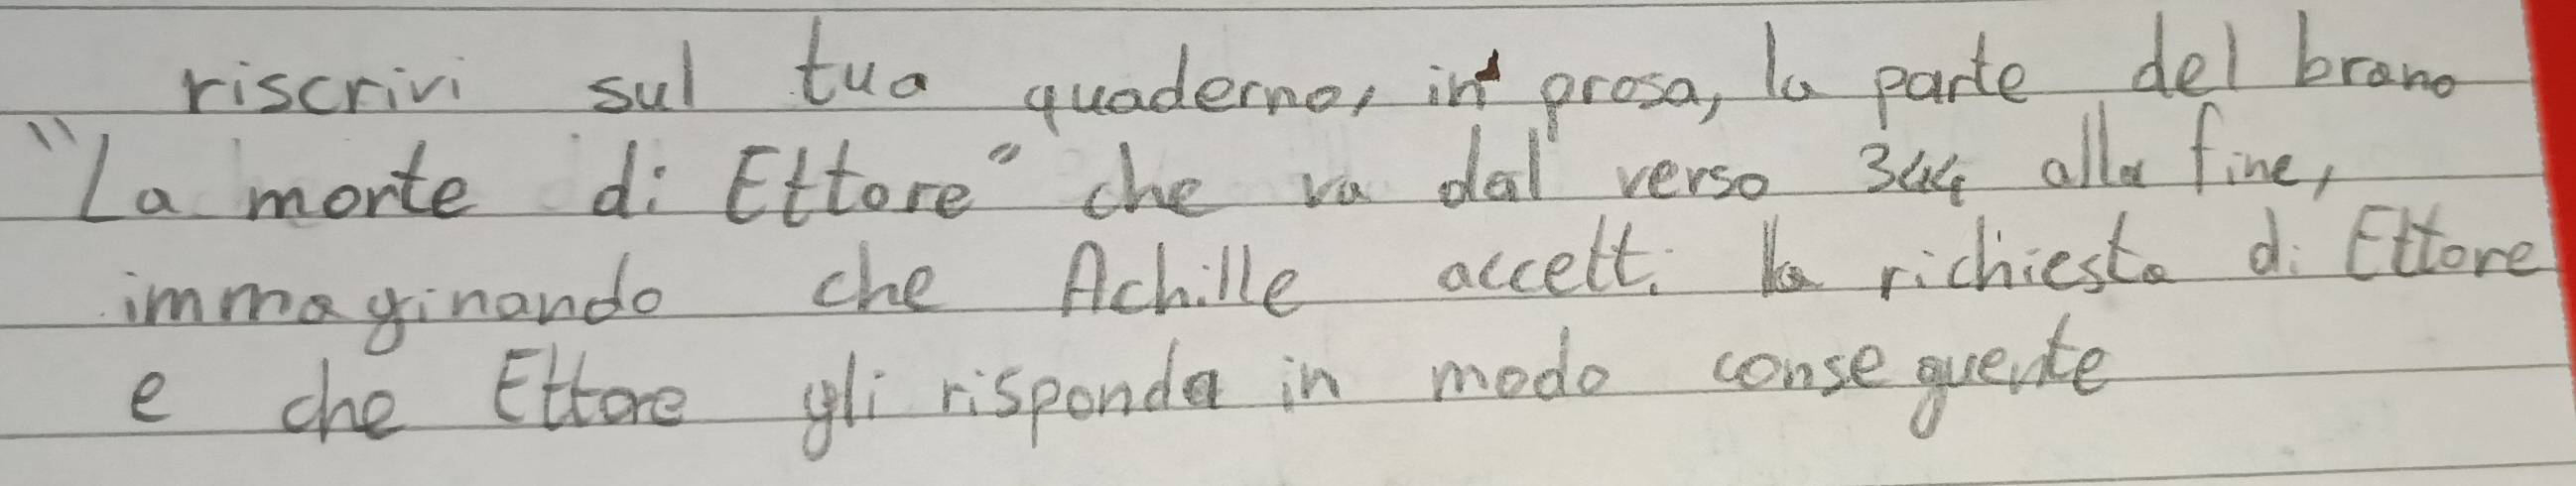 riscrivi sul tuo quaderno, in prosa, la parte del brano
"La morte di Ettore" che va dal verso 344 alla fine,
immaginando che Achille accetti la richiesta di Ettore
e che Ettore gli risponda in modo conseguente